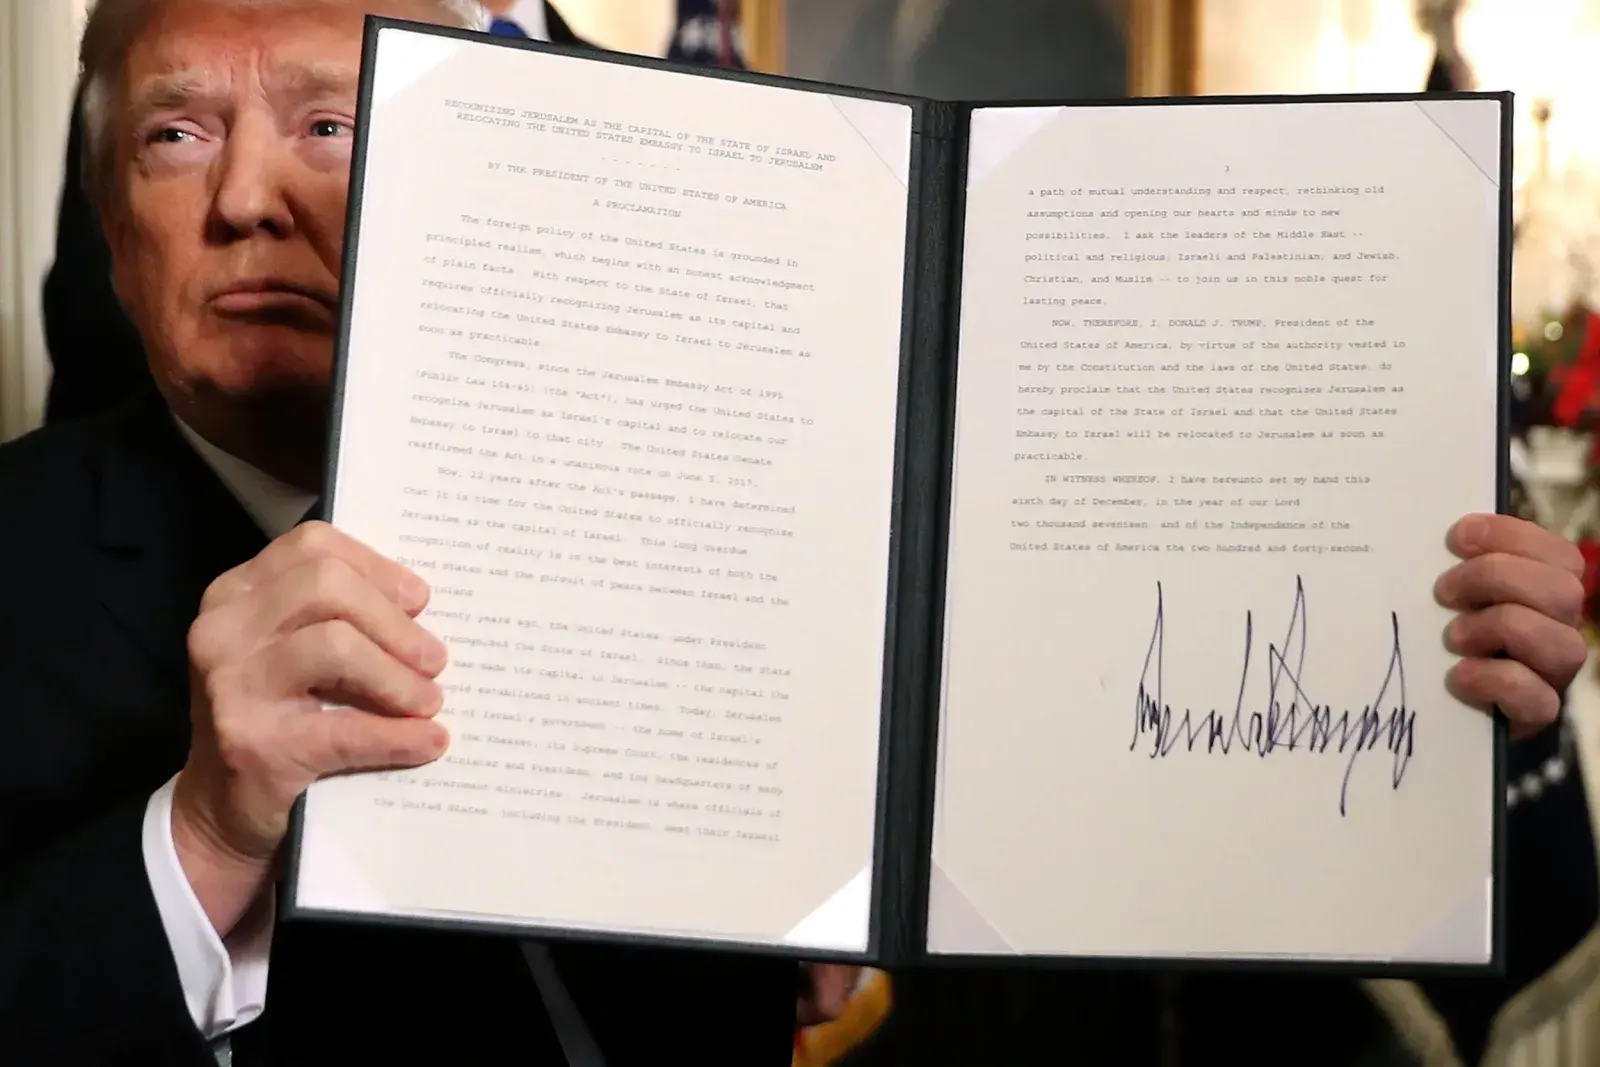 RECOGNIZING JERUSALEM AS THE CAPITAL OF THE STATE OF ISRAEL AND
RELOCATING THE UNITED STATES EMBASSY TO ISRAEL TO JERUSALEM
- - - - - - -
BY THE PRESIDENT OF THE UNITED STATES OF AMERICA
A PROCLAMATION
The foreign policy of the United States is grounded in
principled realism, which begins with an honest acknowledgment
of plain facts. With respect to the State of Israel, that
requires officially recognizing Jerusalem as its capital and
relocating the United States Embassy to Israel to Jerusalem as
soon as practicable.
The Congress, since the Jerusalem Embassy Act of 1995
(Public Law 104-45) (the "Act"), has urged the United States to
recognize Jerusalem as Israel's capital and to relocate our
Embassy to Israel to that city. The United States Senate
reaffirmed the Act in a unanimous vote on June 5, 2017.
Now, 22 years after the Act's passage, I have determined
that it is time for the United States to officially recognize
Jerusalem as the capital of Israel. This long overdue
recognition of reality is in the best interests of both the
United States and the pursuit of peace between Israel and the
tinians.
Seventy years ago, the United States, under President
recognized the State of Israel. Since then, the State
has made its capital in Jerusalem -- the capital the
ople established in ancient times. Today, Jerusalem
at of Israel's government -- the home of Israel's
the Knesset, its Supreme Court, the residences of
Minister and President, and the headquarters of many
of its government ministries. Jerusalem is where officials of
the United States, including the President, meet their Israeli
3
a path of mutual understanding and respect, rethinking old
assumptions and opening our hearts and minds to new
possibilities. I ask the leaders of the Middle East --
political and religious; Israeli and Palestinian; and Jewish,
Christian, and Muslim -- to join us in this noble quest for
lasting peace.
NOW, THEREFORE, I, DONALD J. TRUMP, President of the
United States of America, by virtue of the authority vested in
me by the Constitution and the laws of the United States, do
hereby proclaim that the United States recognizes Jerusalem as
the capital of the State of Israel and that the United States
Embassy to Israel will be relocated to Jerusalem as soon as
practicable.
IN WITNESS WHEREOF, I have hereunto set my hand this
sixth day of December, in the year of our Lord
two thousand seventeen, and of the Independence of the
United States of America the two hundred and forty-second.